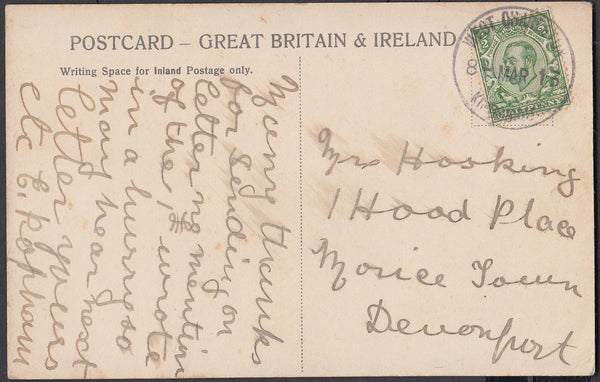 POSTCARD – GREAT BRITAIN & IRELAND
Writing Space for Inland Postage only.
Many thanks
for sending on
letter no mention
of the, I wrote
in a hurry so
may hear next
letter yours
etc E.
Mrs Hosking
1 Hood Place
Morice Town
Devonport
WEST
8 MAR 13